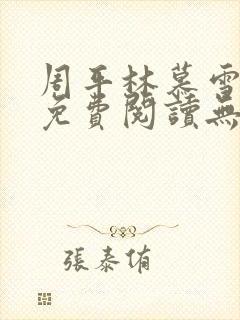 周平林慕雪
免費閱讀無
張泰侑